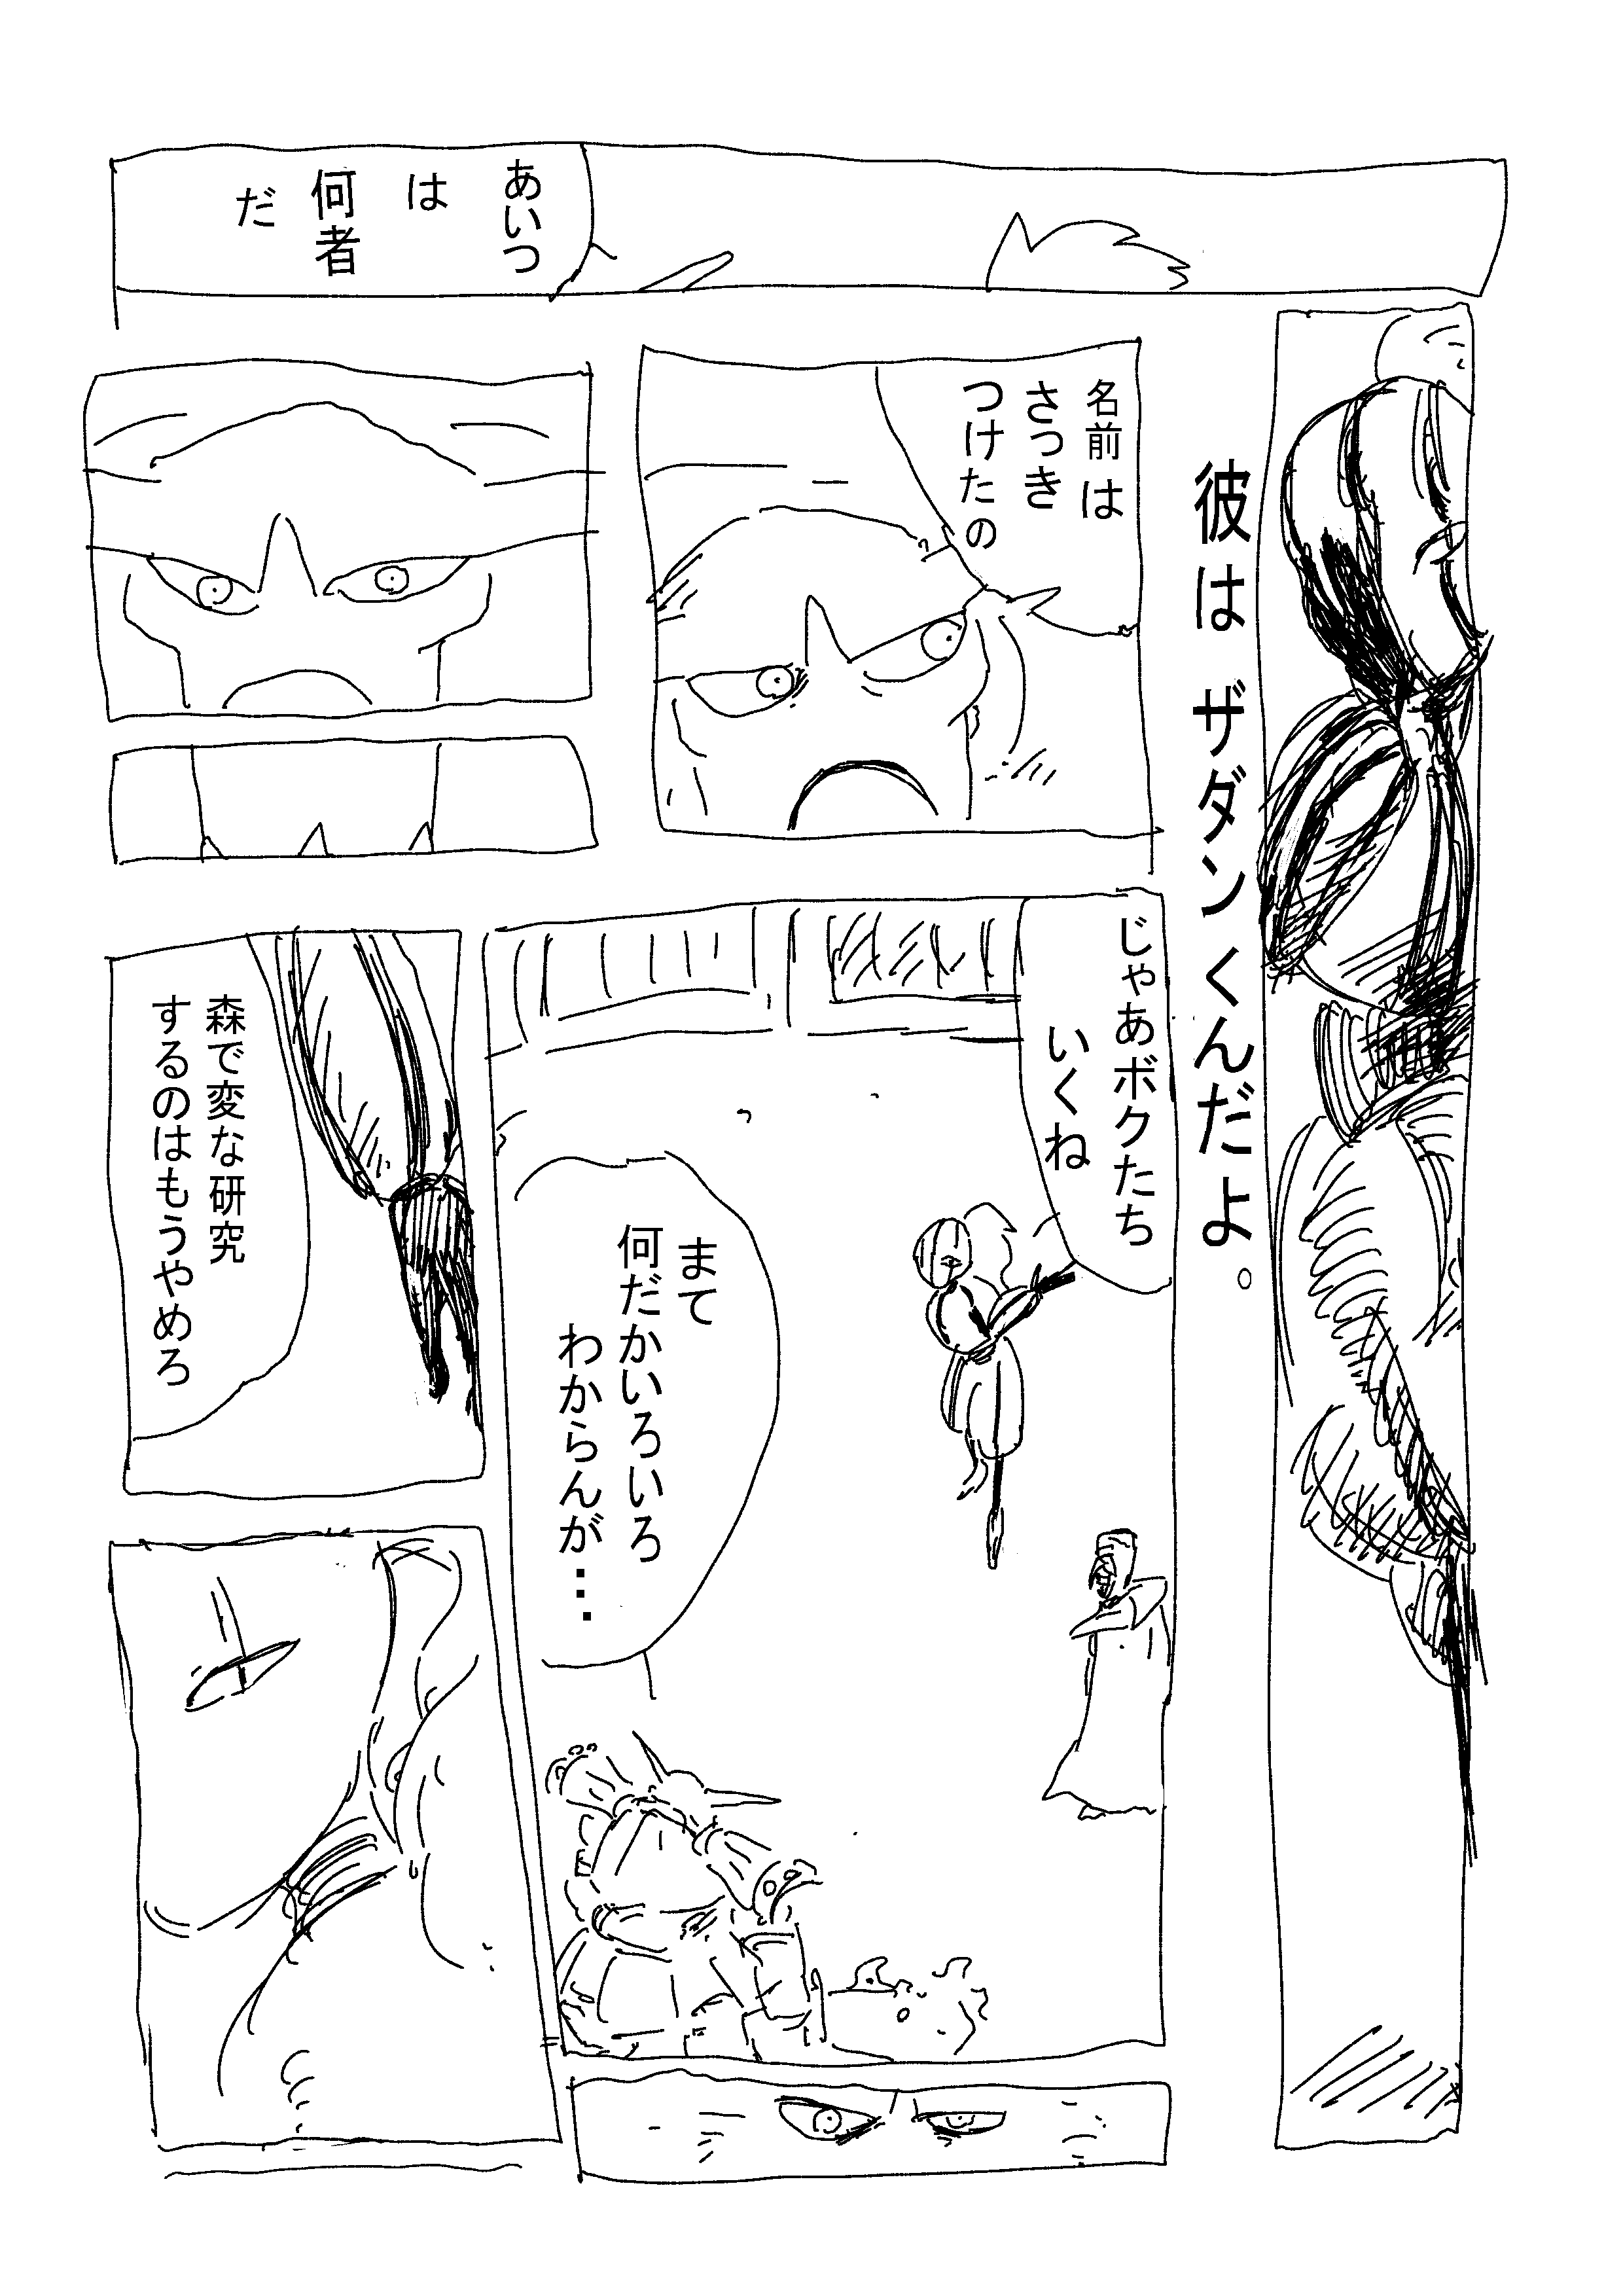 あいつ
は
何者
だ
彼はザダンくんだよ。
名前は
さっき
つけたの
じゃあボクたち
いくね
まて
何だかいろいろ
わからんが…
森で変な研究
するのはもうやめろ